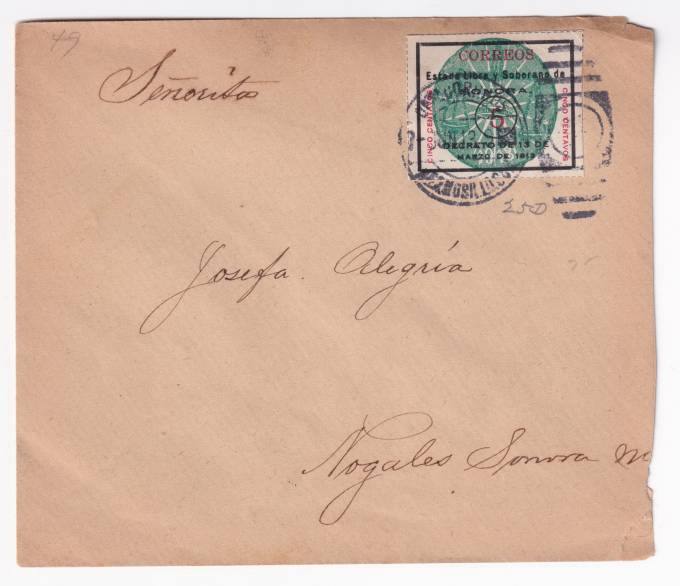 49
Señorita
CORREOS
Estado Libre y Soberano de
SONORA.
CINCO CENTAVOS
5
CINCO CENTAVOS
DECRETO DE 13 DE
MARZO DE 1913
HERMOSILLO
250
Josefa Alegría
Nogales Sonora M